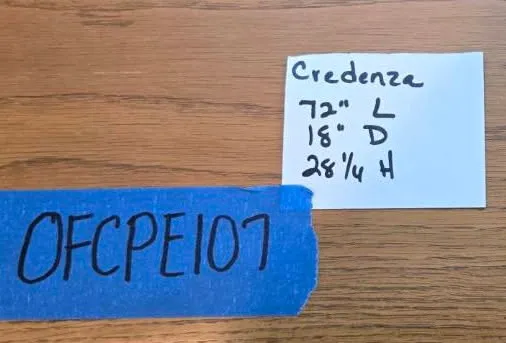 Credenza
72" L
18" D
28 1/4 H
OFCPE107